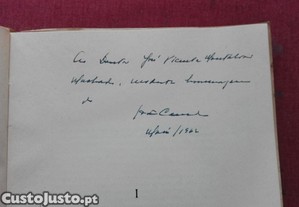 Ao Doutor José Vicente
Machado, modesta homenagem
de
João
Maio/1962
I
CustoJusto.pt